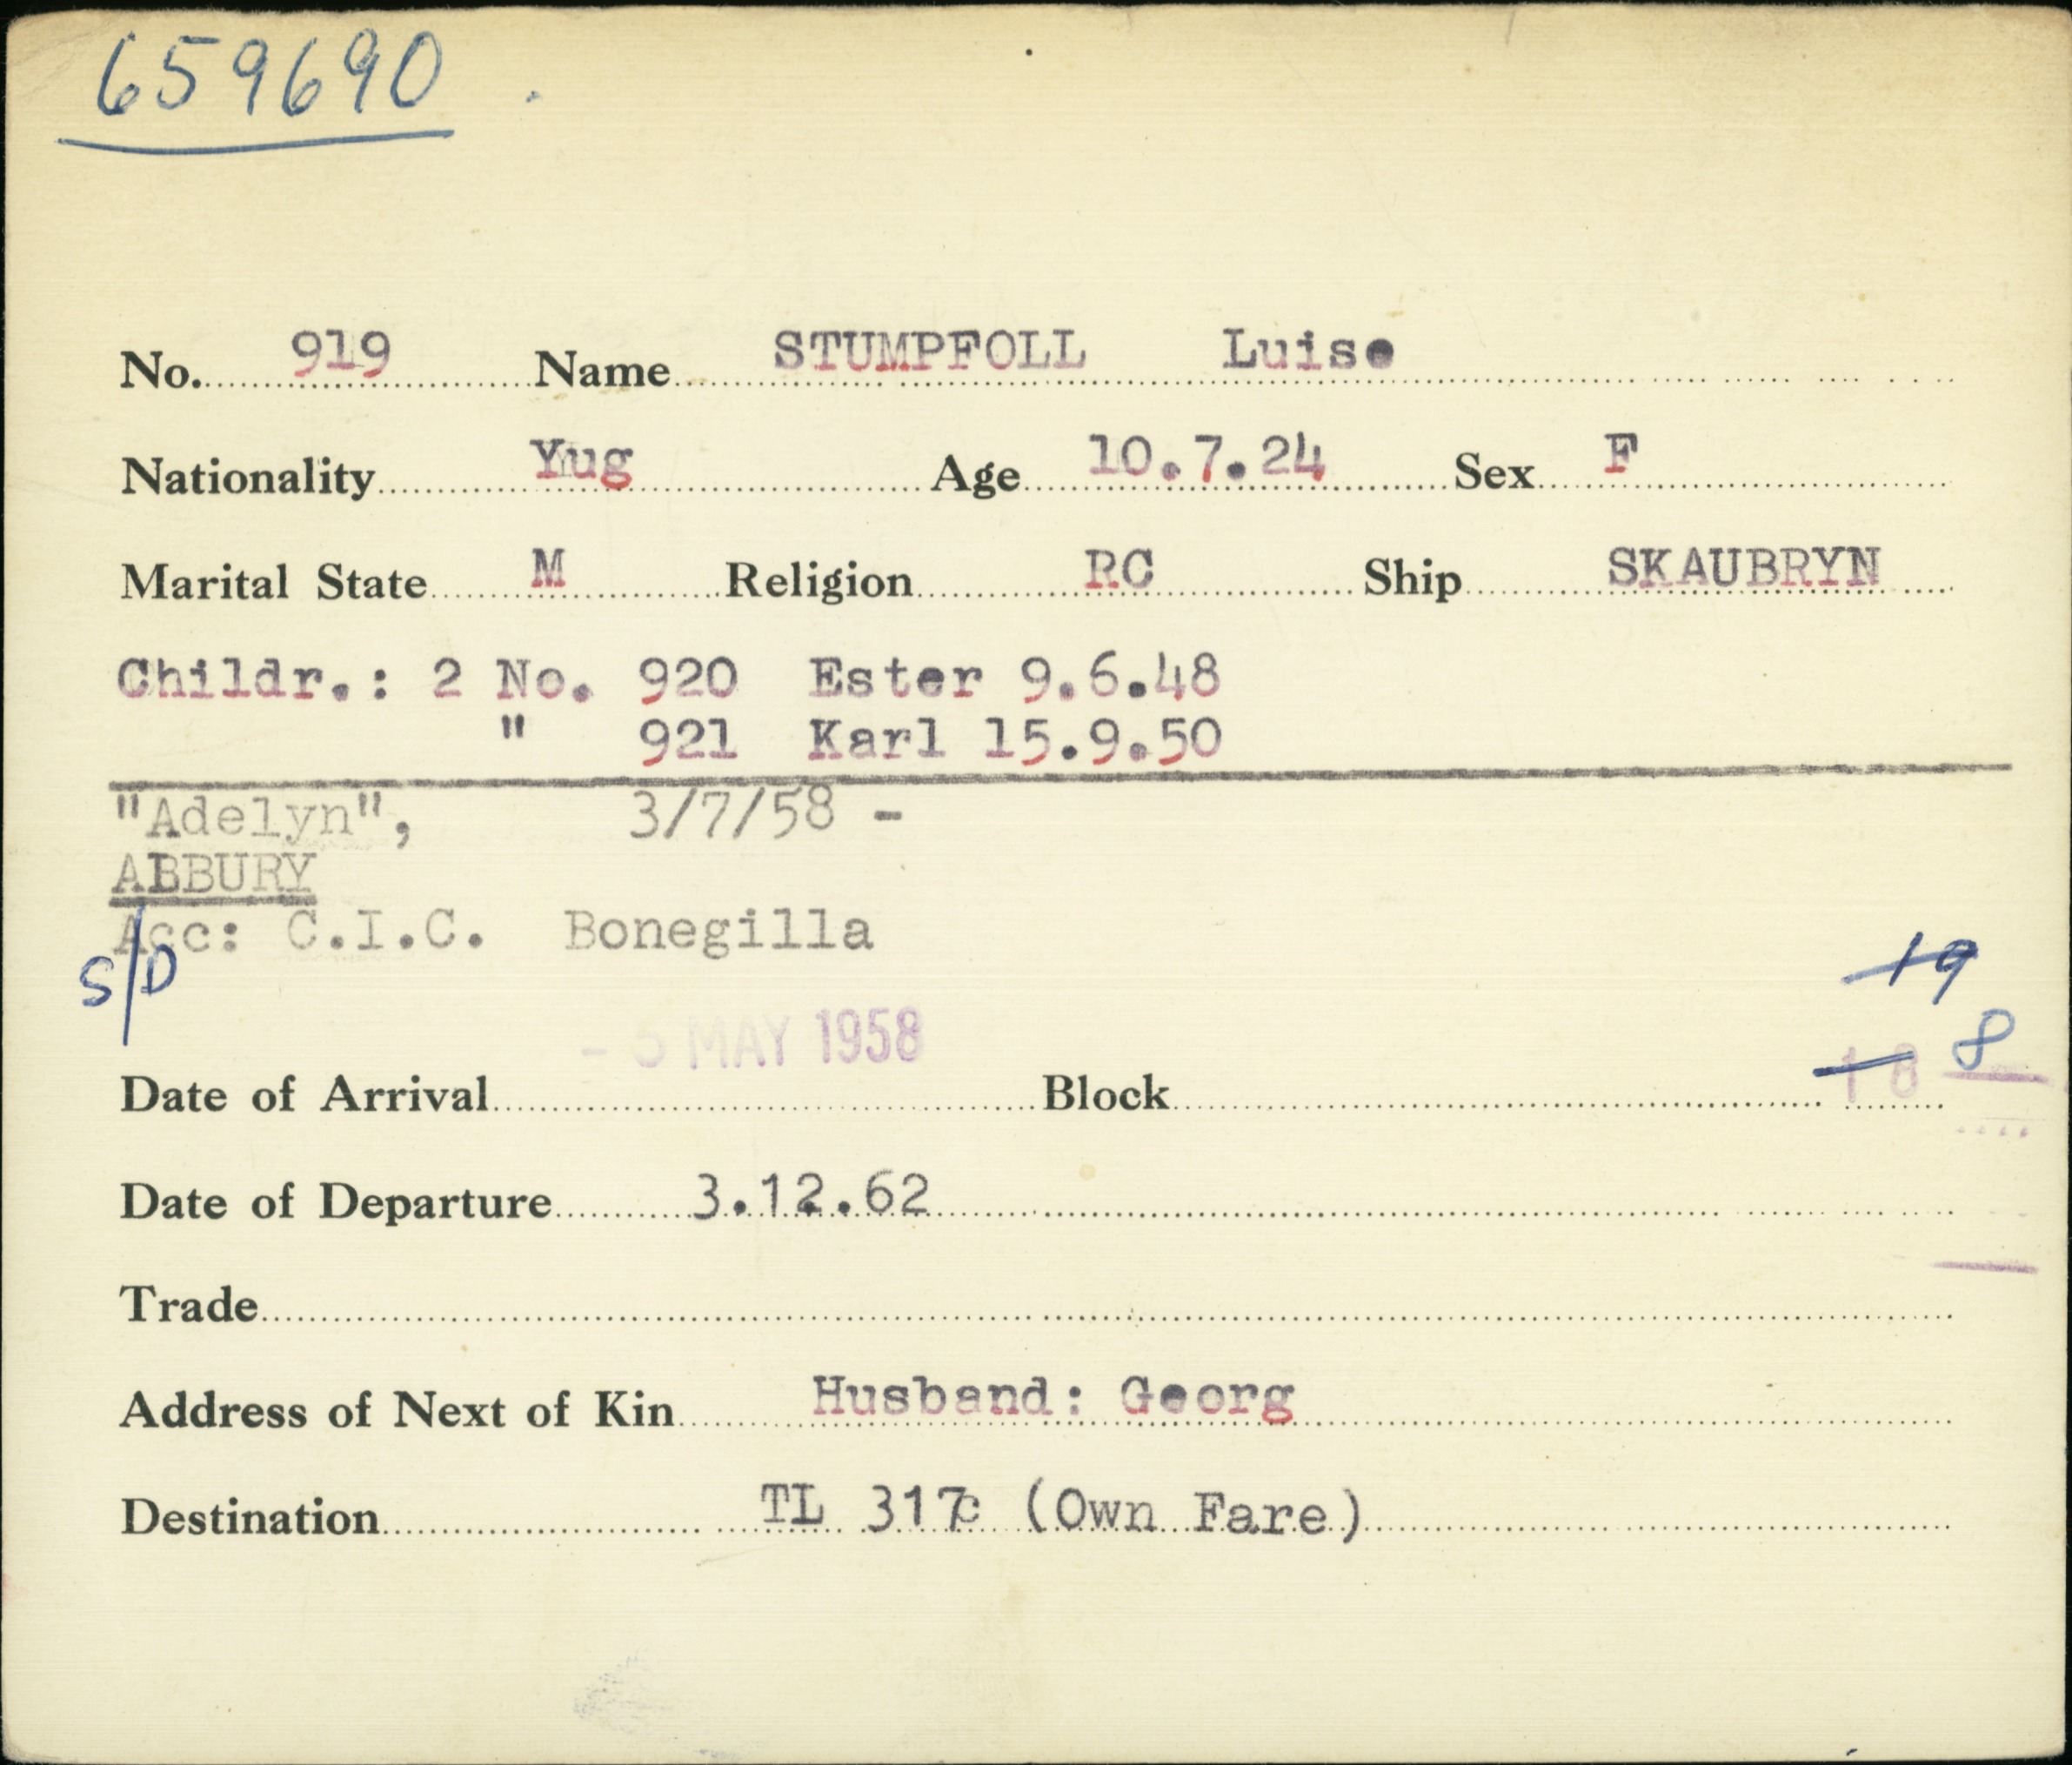 659690
No. 919 Name STUMPFOLL Luise
Nationality Yug Age 10.7.24 Sex F
Marital State M Religion RC Ship SKAUBRYN
Childr.: 2 No. 920 Ester 9.6.48
" 921 Karl 15.9.50
"Adelyn", 3/7/58 -
ALBURY
Acc: C.I.C. Bonegilla
S/D
19
8
- 5 MAY 1958
18
Date of Arrival Block
Date of Departure 3.12.62
Trade
Address of Next of Kin Husband: Georg
Destination TL 317c (Own Fare)